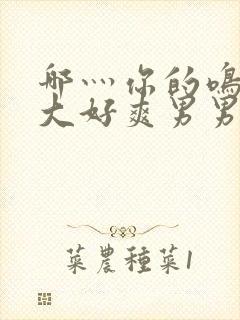 哪灬你的鸣
大好爽男男
菜農種菜1